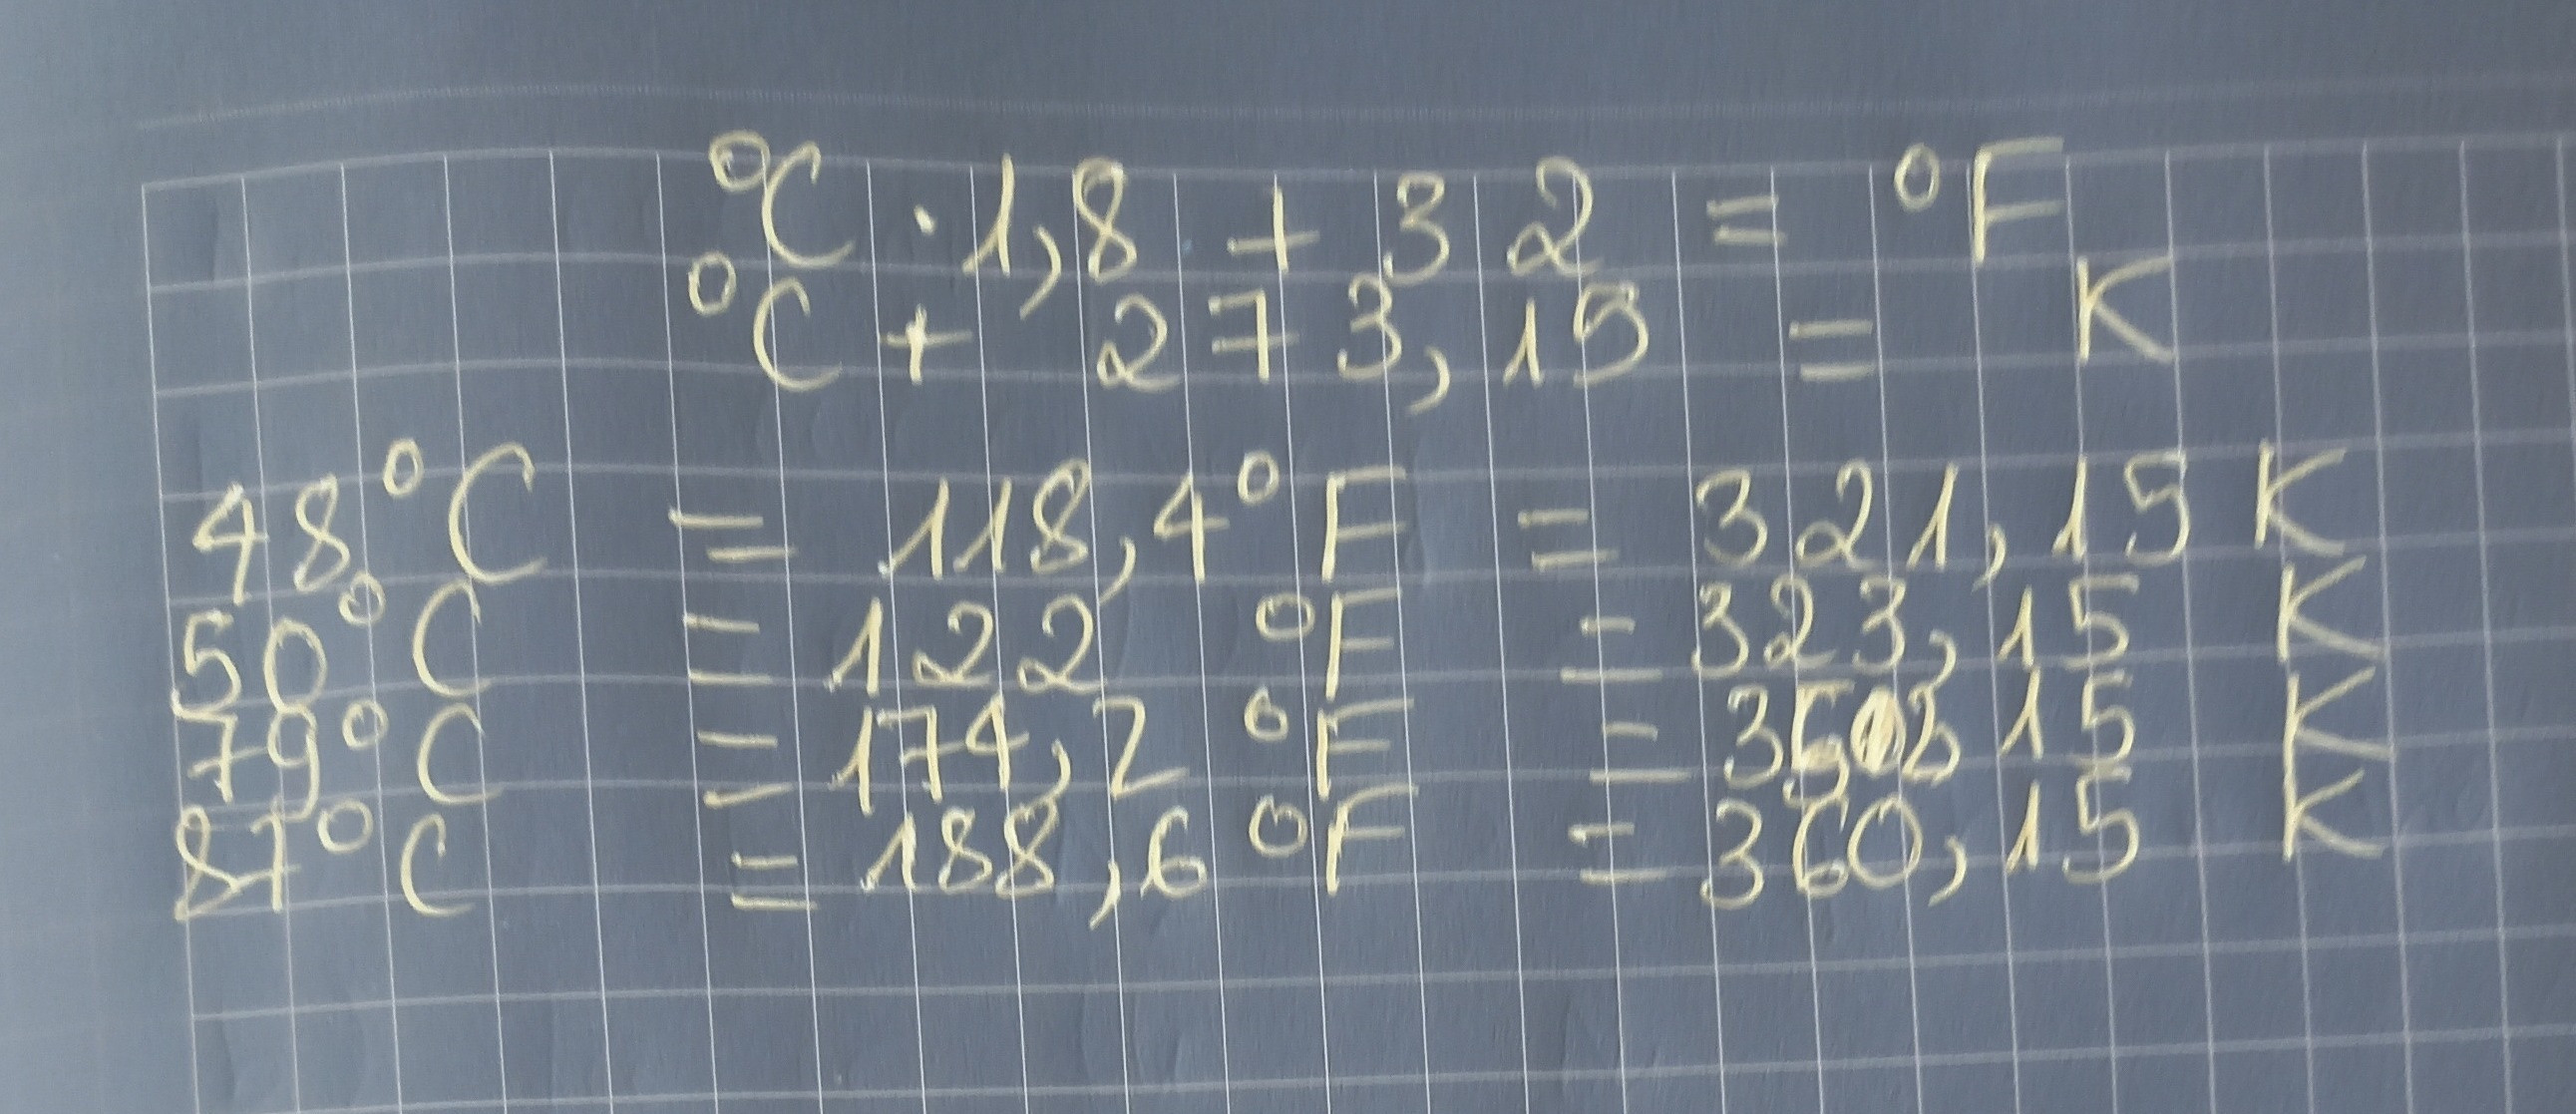 °C · 1,8 + 32 = °F
°C + 273,15 = K
48°C = 118,4°F = 321,15 K
50°C = 122 °F = 323,15 K
79°C = 174,2 °F = 352,15 K
87°C = 188,6 °F = 360,15 K